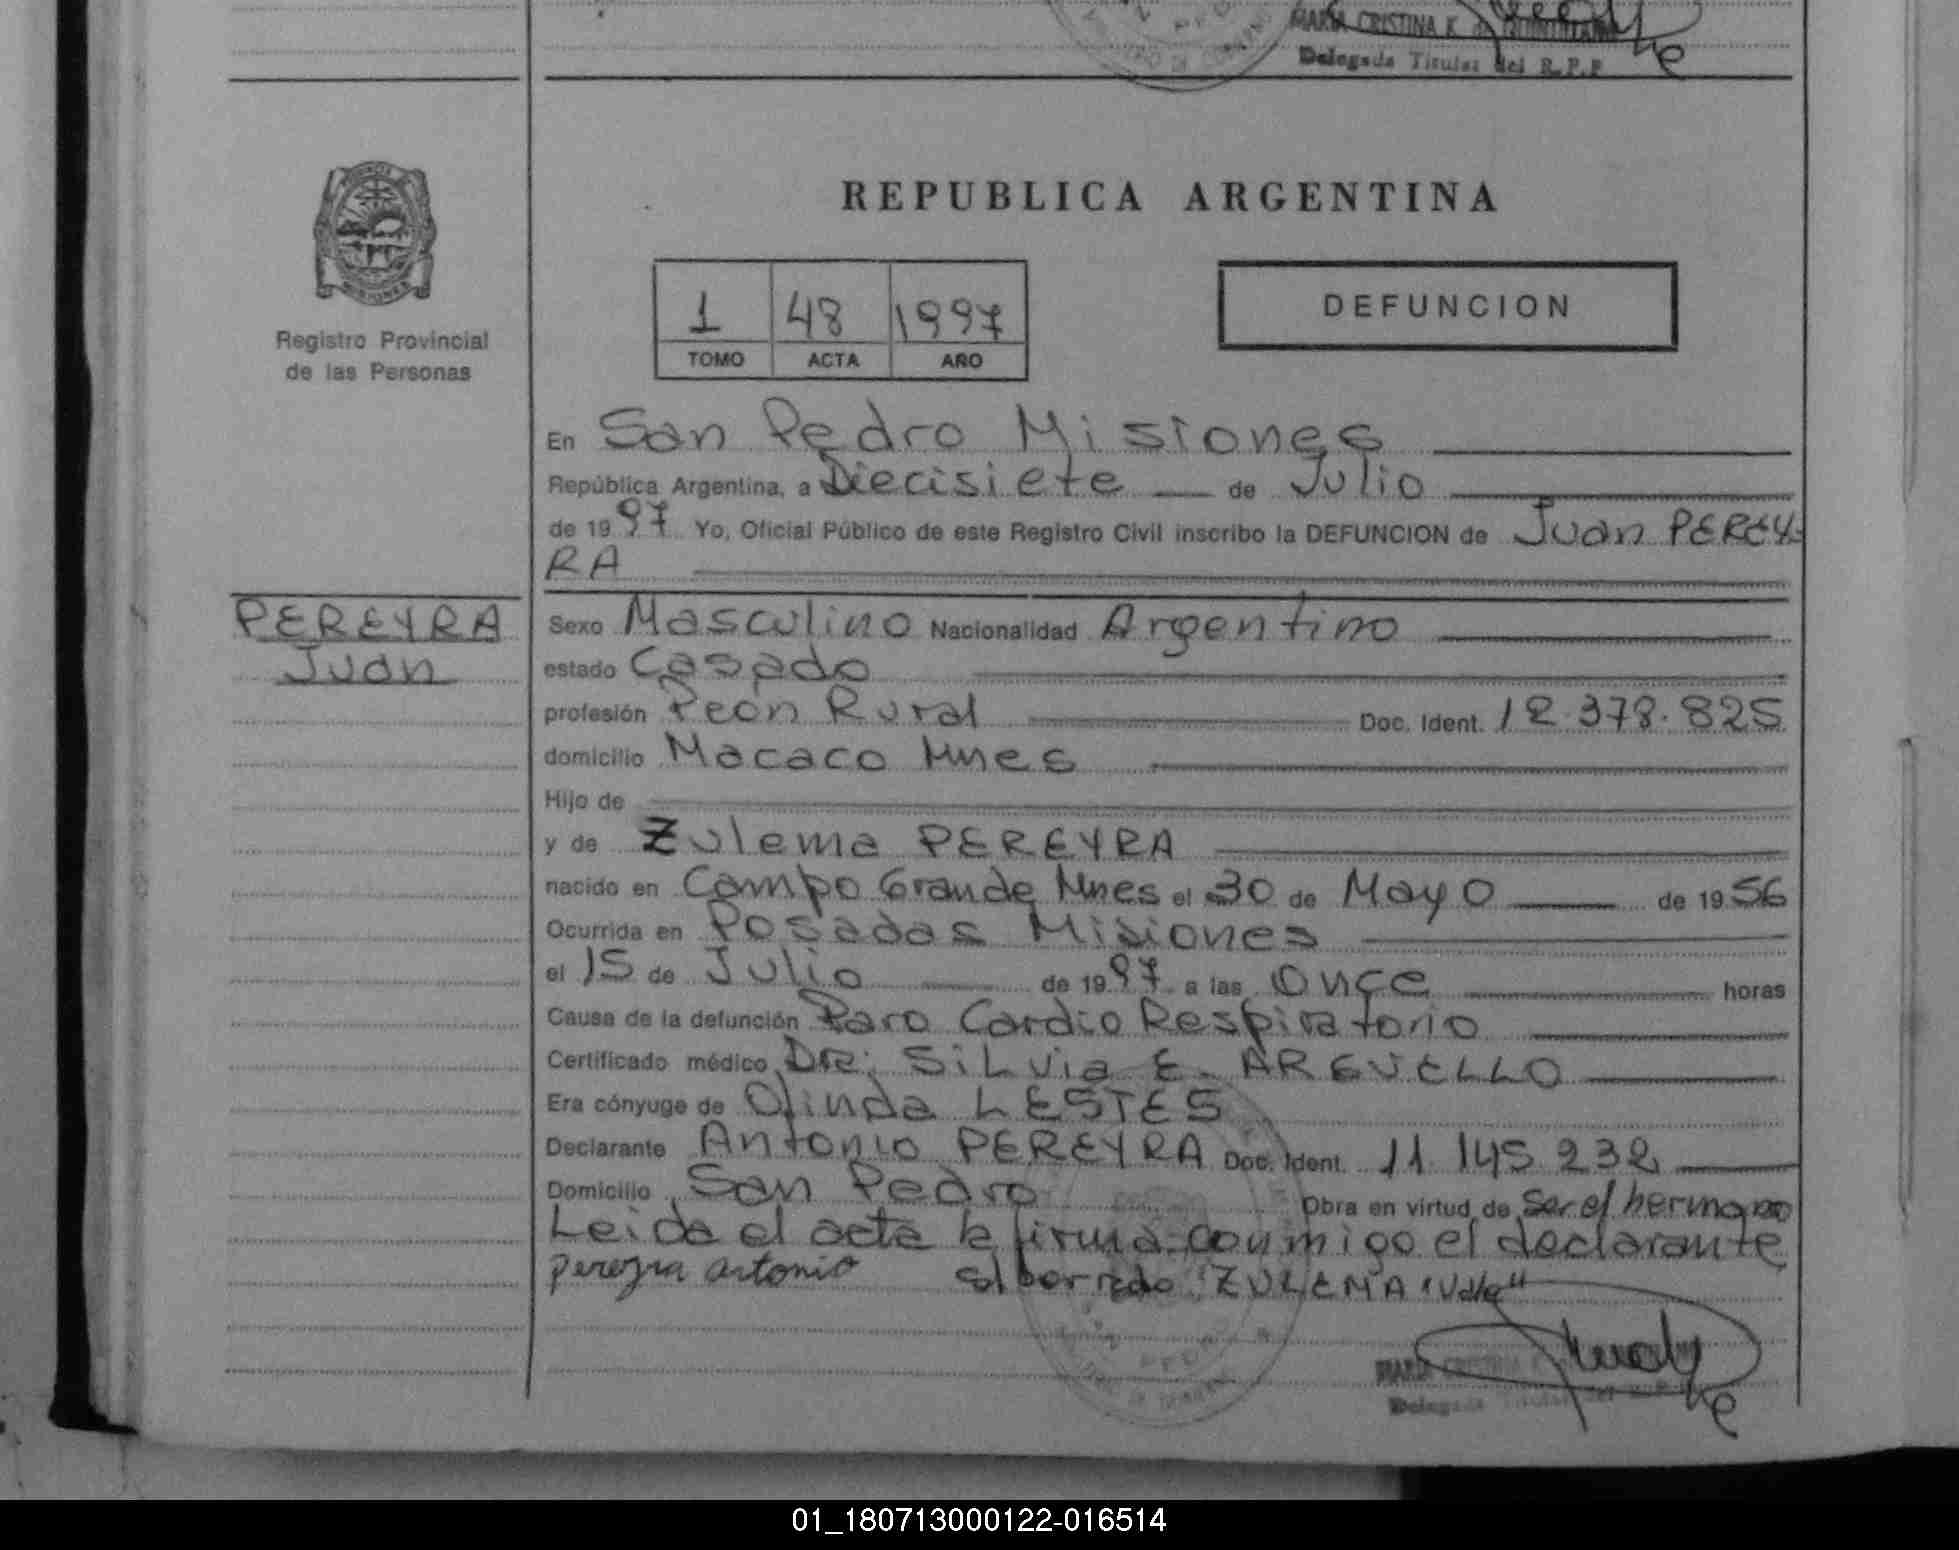 MARIA CRISTINA K. de QUINTANA
Delegada Titular del R.P.P
REPUBLICA ARGENTINA
1 48 1997
TOMO ACTA AÑO
DEFUNCION
MISIONES
Registro Provincial
de las Personas
En San Pedro Misiones
República Argentina, a Diecisiete de Julio
de 1997 Yo, Oficial Público de este Registro Civil inscribo la DEFUNCION de Juan PEREY-
RA
PEREYRA
Juan
Sexo Masculino Nacionalidad Argentino
estado Casado
profesión Peón Rural Doc. Ident. 12.378.825
domicilio Macaco Mnes
Hijo de
y de Zulema PEREYRA
nacido en Campo Grande Mnes el 30 de Mayo de 1956
Ocurrida en Posadas Misiones
el 15 de Julio de 1997 a las Once horas
Causa de la defunción Paro Cardio Respiratorio
Certificado médico DRa: SiLvia E. AREVELLO
Era cónyuge de Olinda LESTES
Declarante Antonio PEREYRA Doc. Ident. 11.145.232
Domicilio San Pedro Obra en virtud de Ser el hermano
Leida el acta la firma conmigo el declarante
pereyra antonio s/borrado "ZULEMA "Vale"
MARIA CRISTINA K.
Delegada Titular del R.P.P
01_180713000122-016514